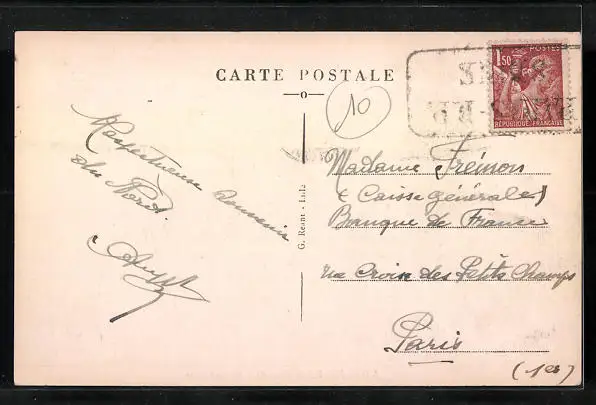 CARTE POSTALE
10
1F50
POSTES
RÉPUBLIQUE FRANÇAISE
Respectueux souvenir
du Nord.
G. Réant - Lille
Madame Frémon
(Caisse générale)
Banque de France
rue Croix des Petits Champs
Paris
(1er)